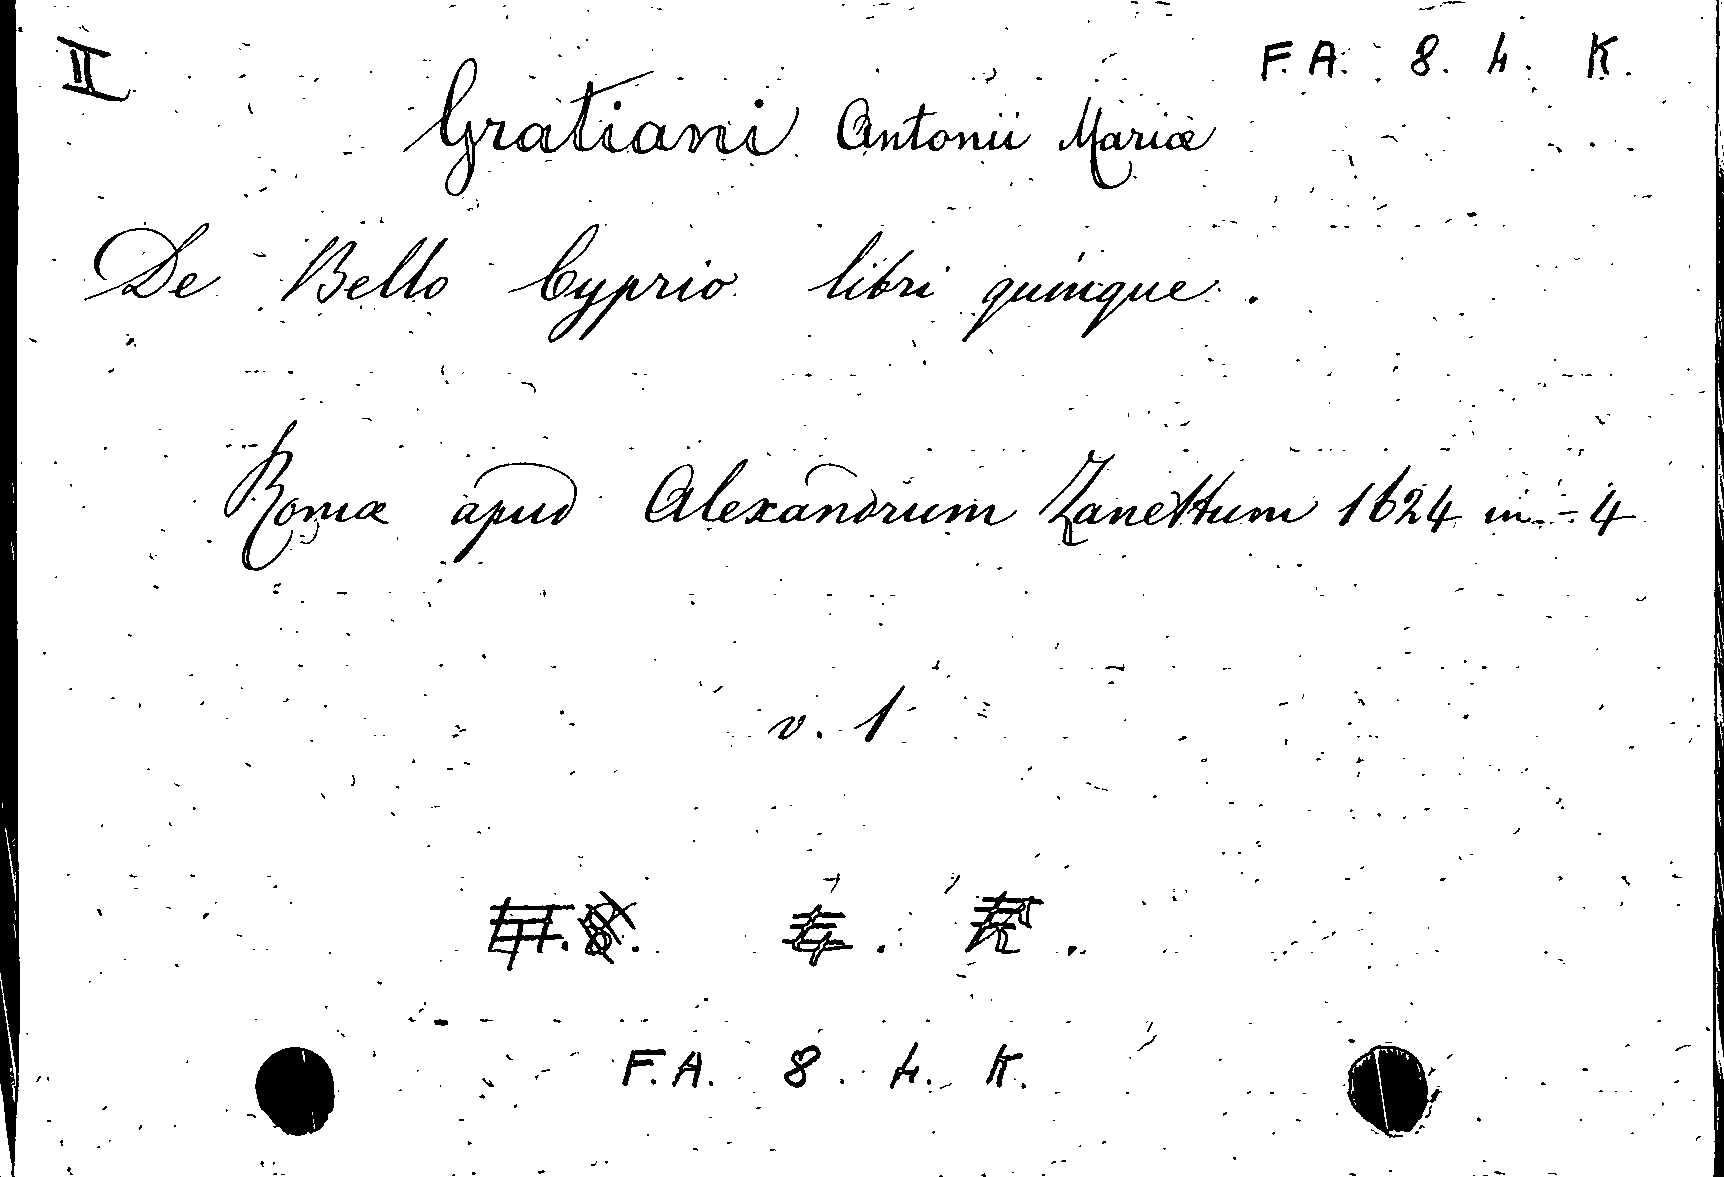 II
F. A. 8. 4. K.
Gratiani Antonii Mariæ
De Bello Cyprio libri quinque.
Romæ apud Alexandrum Zanettum 1624 in-4
v. 1
F. A. 8. 4. K.